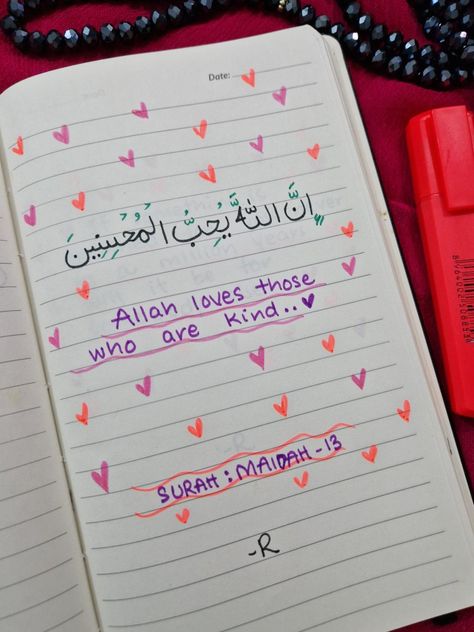 Date:
اِنَّ اللّٰهَ يُحِبُّ الْمُحْسِنِينَ
Allah loves those
who are kind..
SURAH : MAIDAH - 13
-R